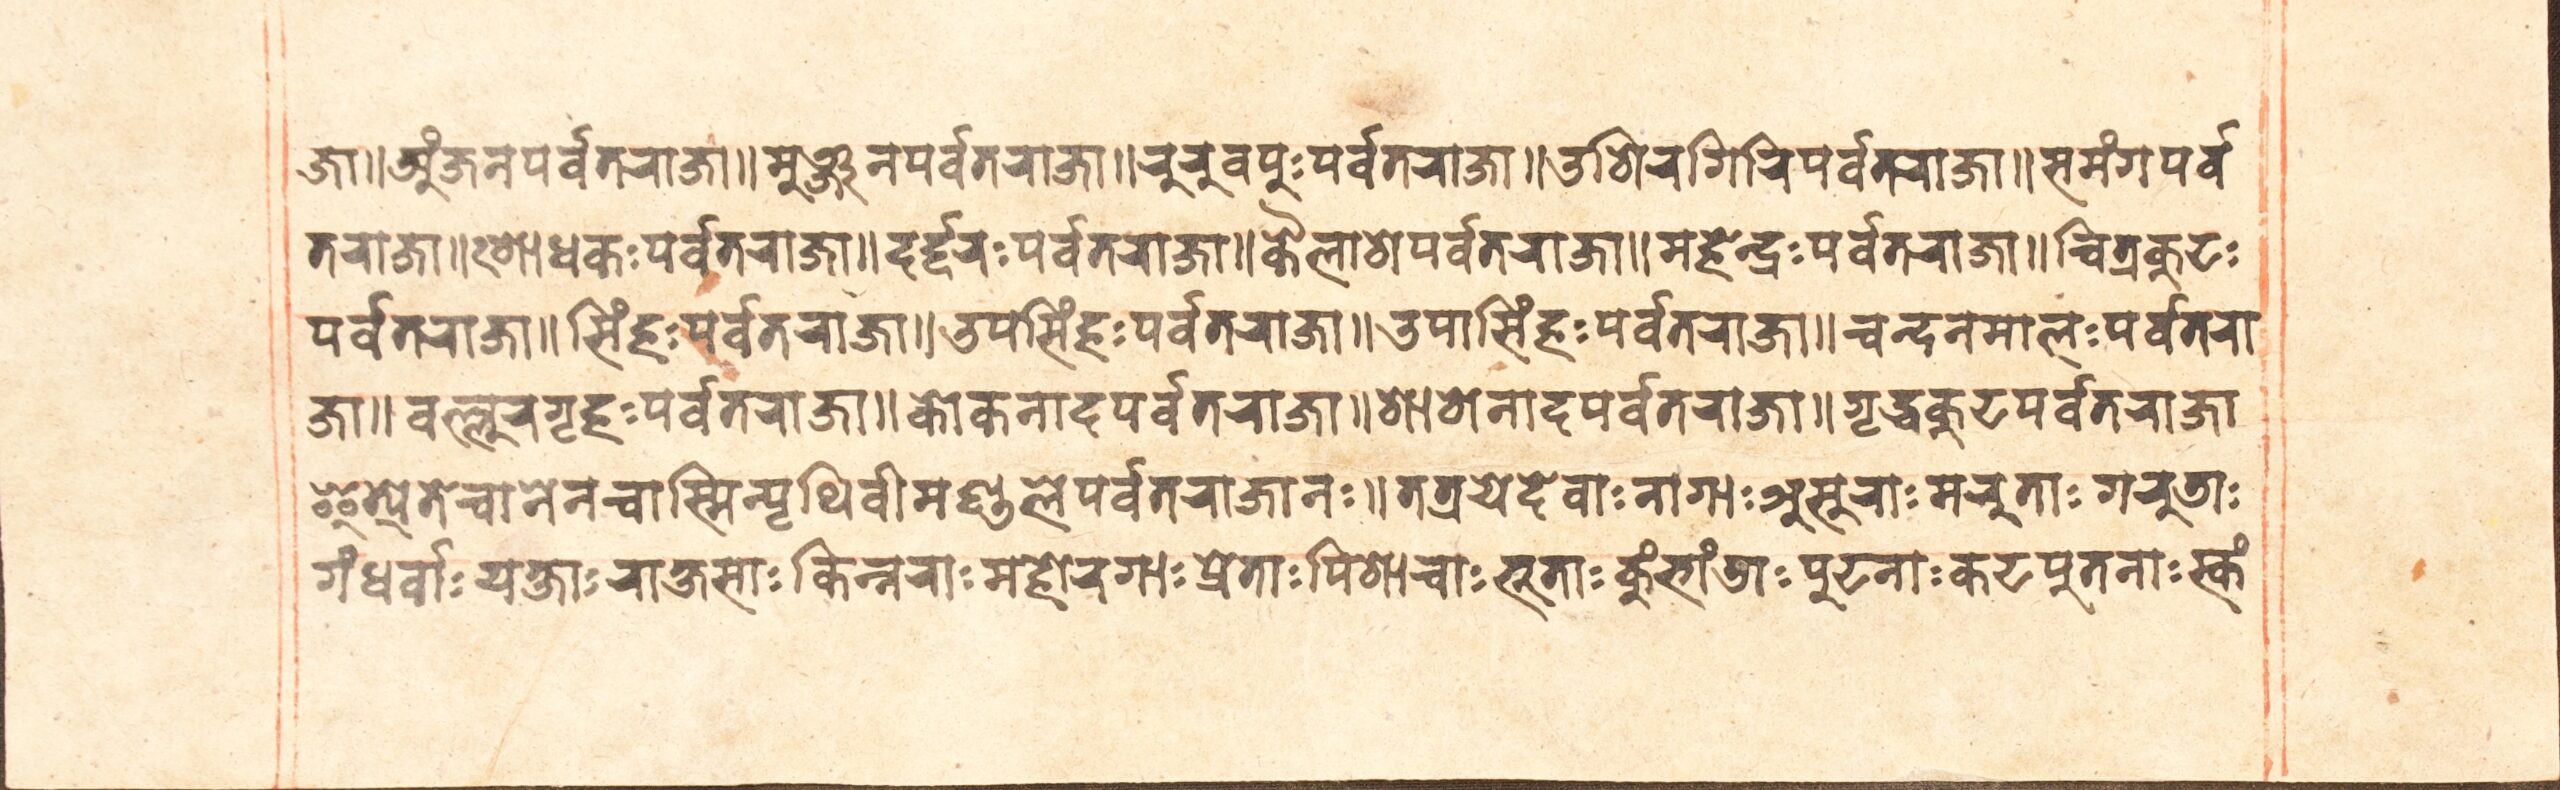 जा॥अंजनपर्वतराजा॥मुञ्जनपर्वतराजा॥रुरुवपुःपर्वतराजा॥उशिरगिरिपर्वतराजा॥समंगपर्व
तराजा॥शोधकःपर्वतराजा॥दर्द्दरःपर्वतराजा॥कैलाशपर्वतराजा॥महेन्द्रःपर्वतराजा॥चित्रकुटः
पर्वतराजा॥सिंहःपर्वतराजा॥उपसिंहःपर्वतराजा॥उपासिंहःपर्वतराजा॥चन्दनमालःपर्वतरा
जा॥वल्लुरगृहःपर्वतराजा॥कोकनादपर्वतराजा॥शाशनादपर्वतराजा॥गृद्ध्रकुटपर्वतराजा
इत्येतेचानेनचास्मिन्पृथिवीमण्डलेपर्वतराजानः॥तत्रयेदेवाःनागाःअसुराःमरुताःगरुडाः
गंधर्वाःयक्षाःराक्षसाःकिन्नराःमहोरगाःप्रेताःपिशाचाःभूताःकुंभांडाःपुटनाःकटपुतनाःस्कं